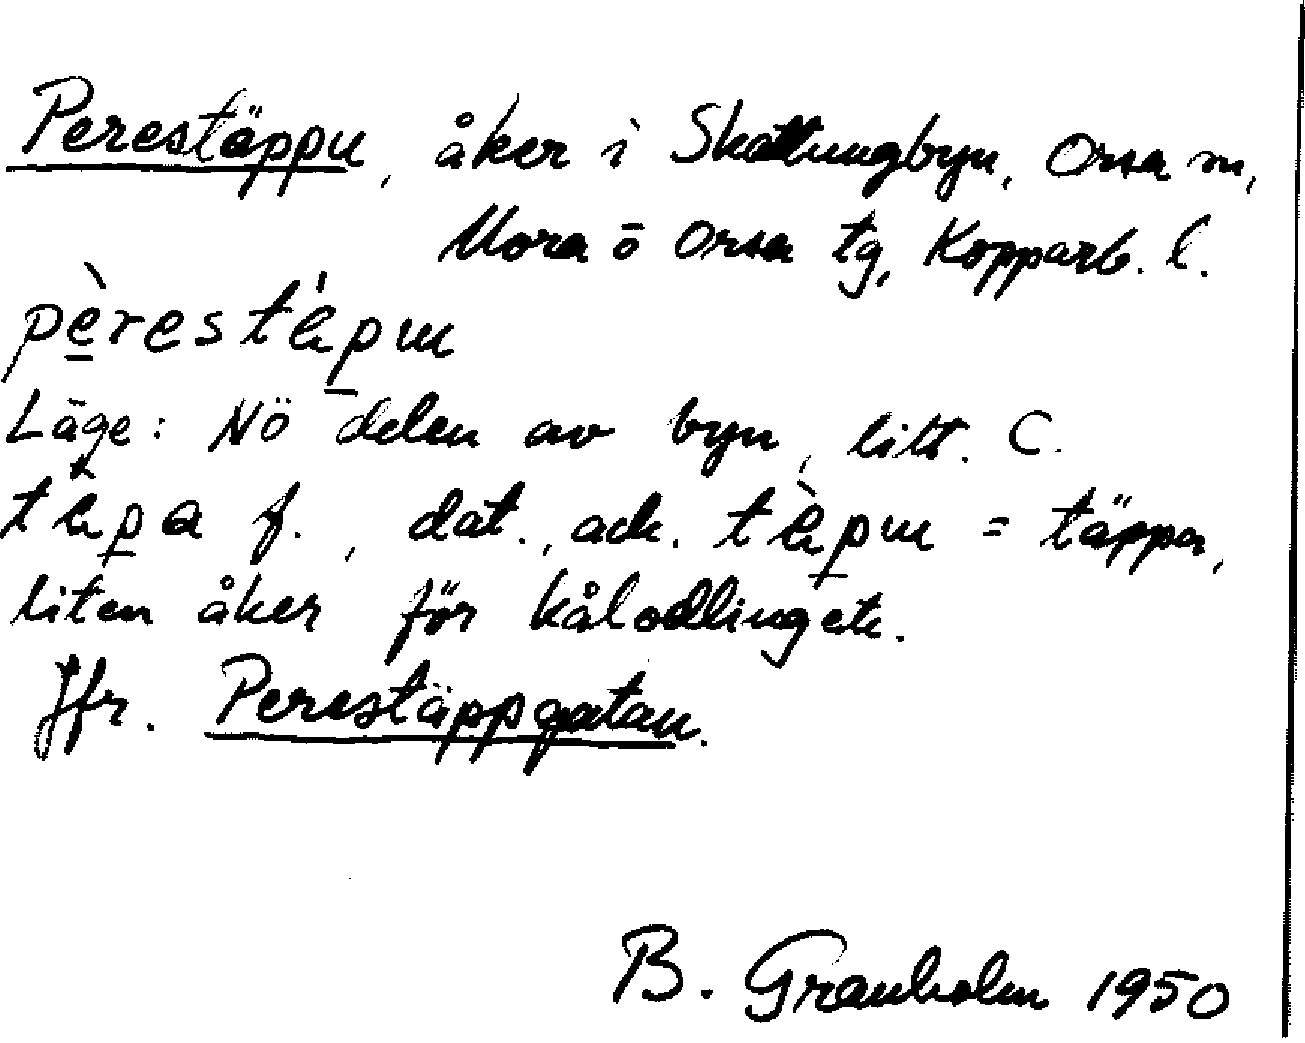 Perestäppu, åker i Skattungbyn, Orsa sn,
Mora o Orsa tg, Kopparb. l.
Läge: NÖ delen av byn, litt. C.
f., dat., ack. = täppa,
liten åker för kålodling etc.
Jfr. Perestäppgatan.
B. Granholm 1950